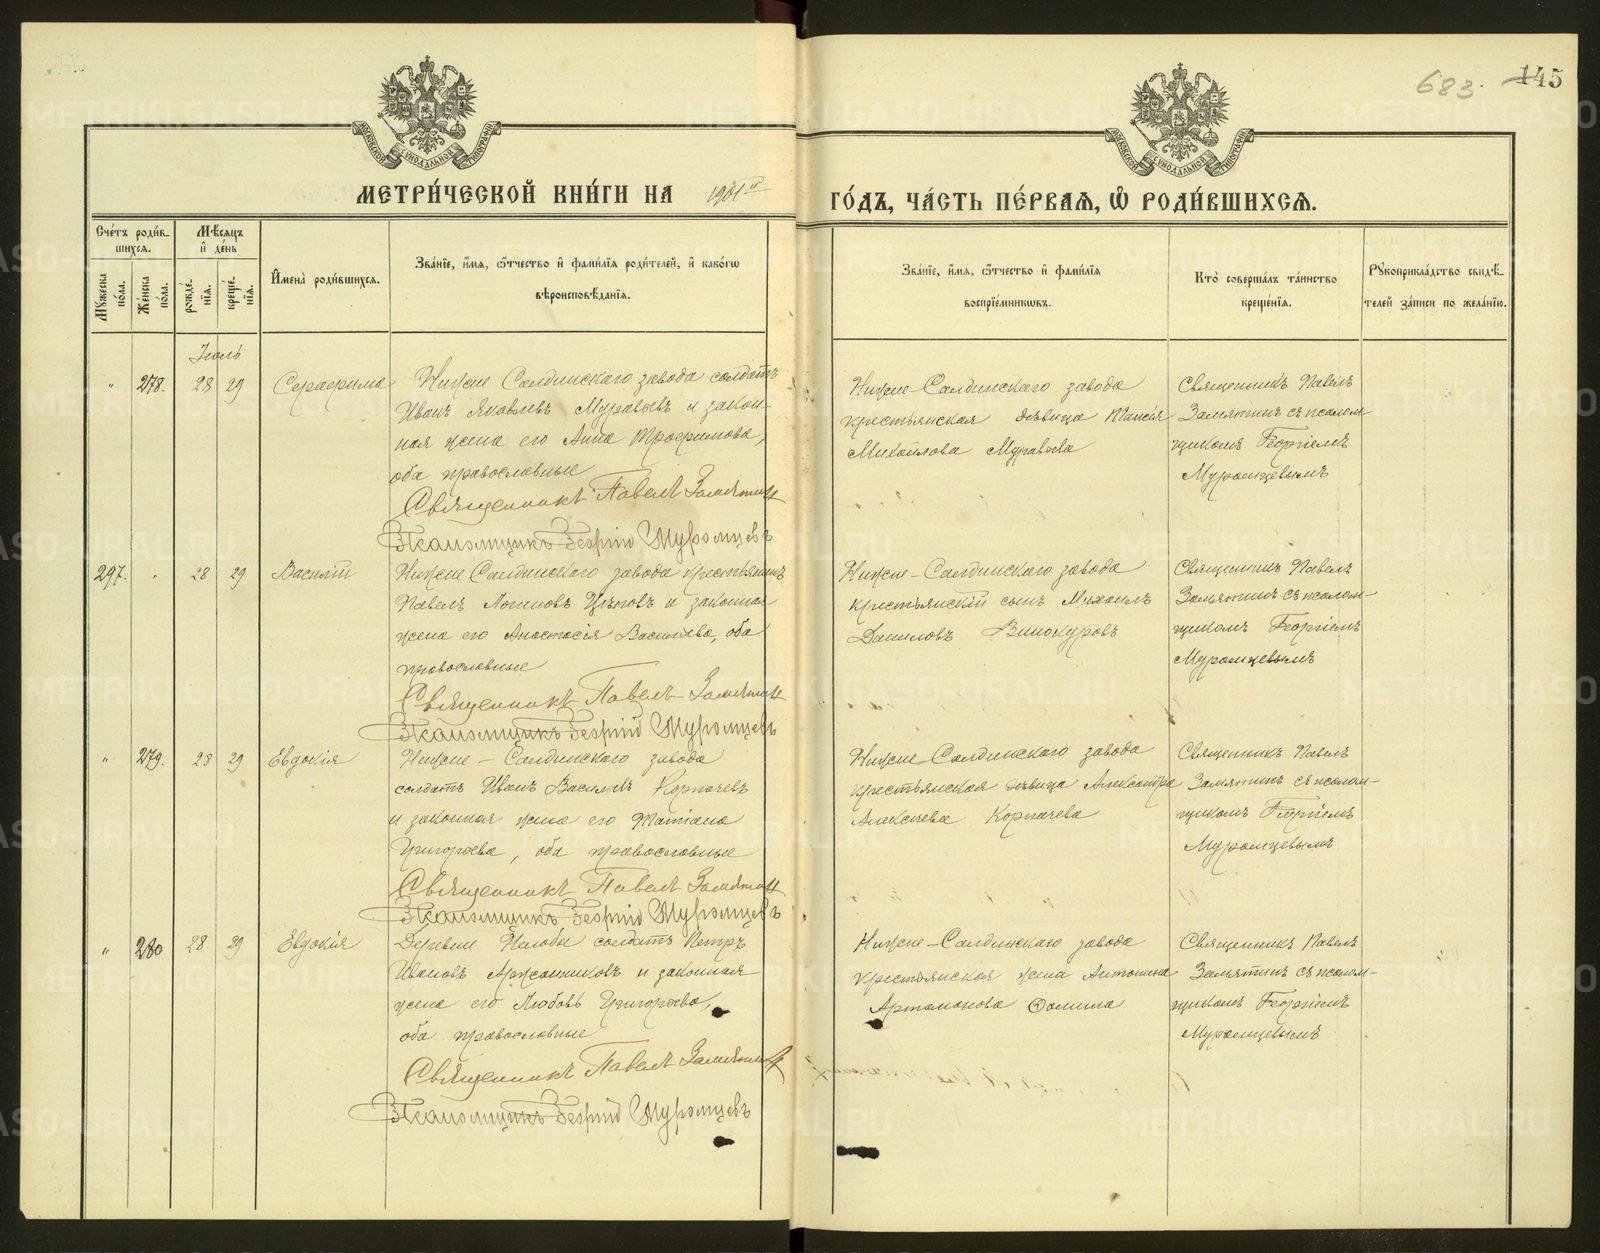 683. 145
МОСКОВСКОЙ СѴНОДАЛЬНОЙ ТИПОГРАФІИ
МОСКОВСКОЙ СѴНОДАЛЬНОЙ ТИПОГРАФІИ
МЕТРИ́ЧЕСКОЙ КНИ́ГИ НА 1901й ГО́ДЪ, ЧА́СТЬ ПЕ́РВАѦ, Ѽ РОДИ́ВШИХСѦ.
Сче́тъ роди́в-
шихсѧ.
Мꙋжеска по́ла.
Же́нска по́ла.
Мѣ́сѧцъ и҆ де́нь
рожде́-
нїѧ.
креще́-
нїѧ.
И҆мена̀ роди́вшихсѧ.
Зва́нїе, и҆́мѧ, ѻ҆́тчество и҆ фами́лїѧ роди́телей, и҆ како́гѡ
вѣроисповѣ́данїѧ.
Зва́нїе, и҆́мѧ, ѻ҆́тчество и҆ фами́лїѧ
воспрїе́мниковъ.
Кто̀ соверша́лъ та́инство
креще́нїѧ.
Рꙋкоприкла́дство свидѣ́-
телей за́писи по жела́нїю.
Іюль
" 278. 28 29 Серафима
Нижне Салдинскаго завода солдатъ
Иванъ Яковлевъ Муравьевъ и закон-
ная жена его Анна Трофимова,
оба православные
Священникъ Павелъ Замятин
Псаломщикъ Георгій Муромцевъ
Нижне-Салдинскаго завода
крестьянская дѣвица Таисія
Михайлова Муравьева
Священникъ Павелъ
Замятинъ съ псалом-
щикомъ Георгіемъ
Муромцевымъ
297. " 28 29 Василій
Нижне Салдинскаго завода крестьянинъ
Павелъ Логиновъ и законная
жена его Анастасія Васильева, оба
православные
Священникъ Павелъ Замятин
Псаломщикъ Георгій Муромцевъ
Нижне-Салдинскаго завода
крестьянскій сынъ Михаилъ
Даниловъ Винокуровъ
Священникъ Павелъ
Замятинъ съ псалом-
щикомъ Георгіемъ
Муромцевымъ
" 279. 28 29 Евдокія
Нижне-Салдинскаго завода
солдатъ Иванъ Васильевъ Корпачевъ
и законная жена его Татіана
Григорьева, оба православные
Священникъ Павелъ Замятин
Псаломщикъ Георгій Муромцевъ
Нижне-Салдинскаго завода
крестьянская дѣвица Александра
Алексѣева Корпачева
Священникъ Павелъ
Замятинъ съ псалом-
щикомъ Георгіемъ
Муромцевымъ
" 280 28 29 Евдокія
Деревни солдатъ Петръ
Ивановъ и законная
жена его Любовь Григорьева,
оба православные
Священникъ Павелъ Замятин
Псаломщикъ Георгій Муромцевъ
Нижне-Салдинскаго завода
крестьянская жена Антонина
Артамонова Фомина
Священникъ Павелъ
Замятинъ съ псалом-
щикомъ Георгіемъ
Муромцевымъ
METRIKI.GASO-URAL.RU